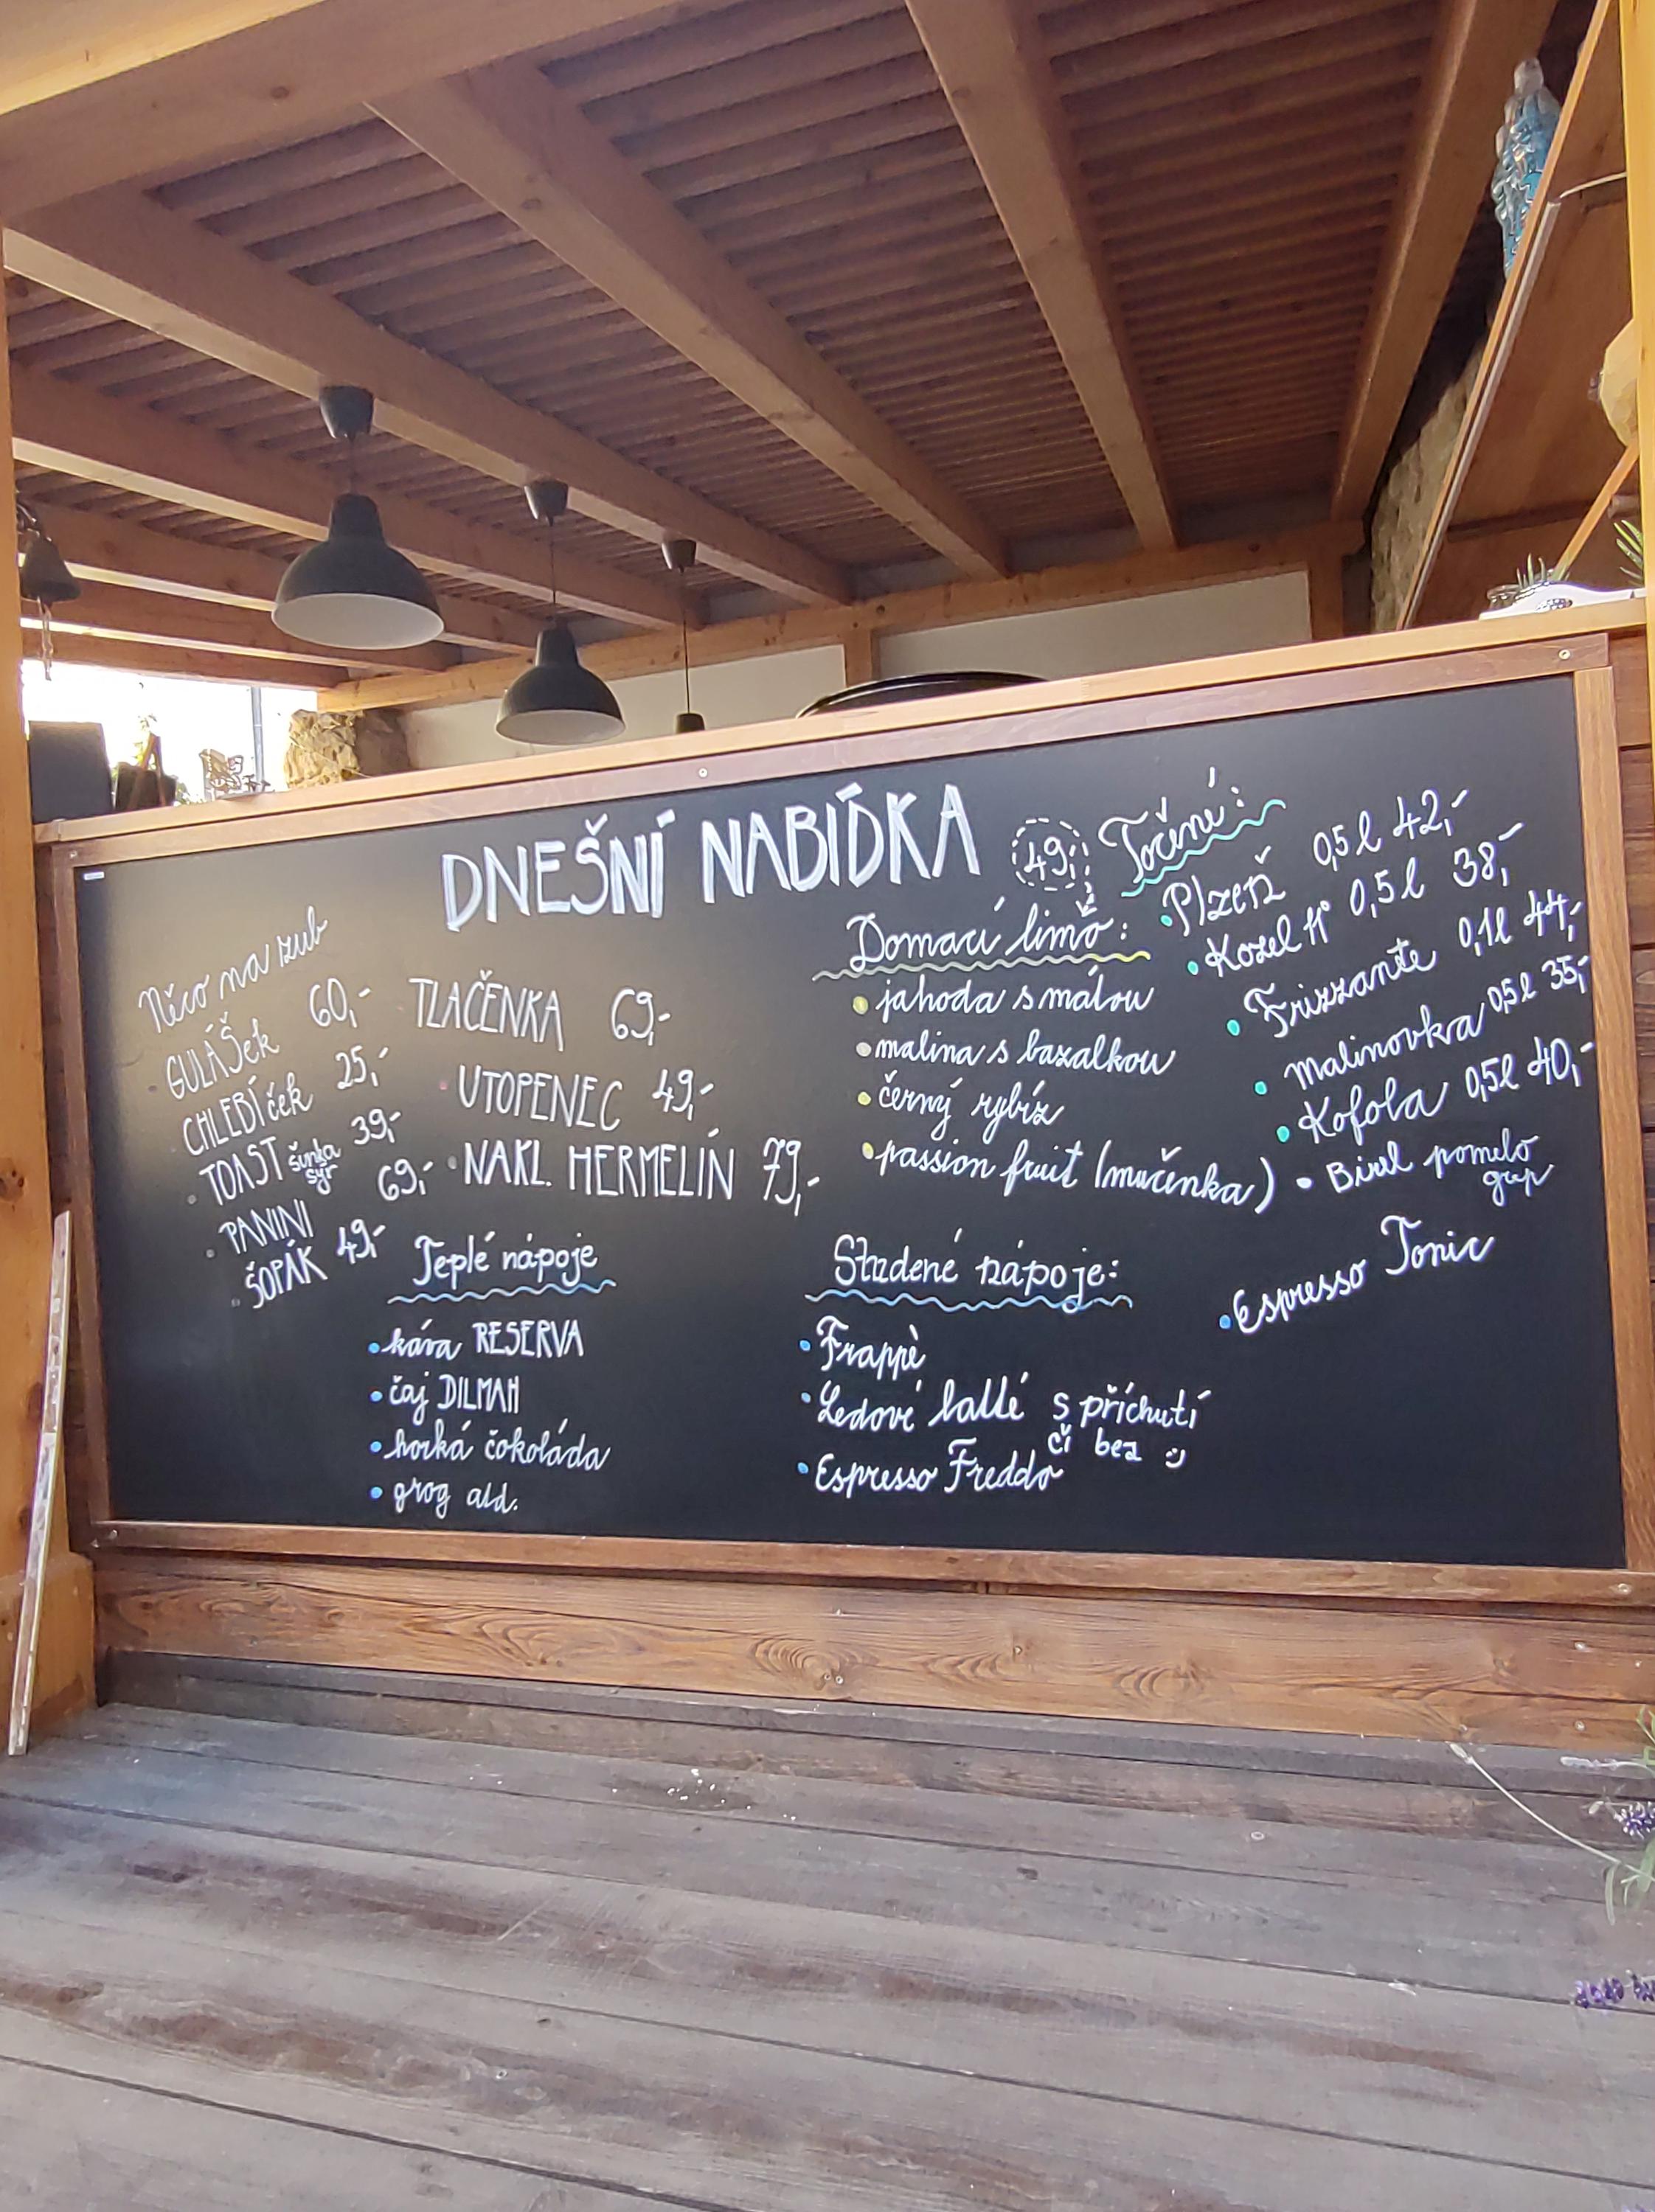 DNEŠNÍ NABÍDKA
Něco na zub
GULÁŠek 60,-
CHLEBÍček 25,-
TOAST šunka sýr 39,-
PANINI 69,-
ŠOPÁK 49,-
TLAČENKA 69,-
UTOPENEC 49,-
NAKL. HERMELÍN 79,-
Teplé nápoje
káva RESERVA
čaj DILMAH
horká čokoláda
grog ald.
49,-
Domací limo:
jahoda s mátou
malina s bazalkou
černý rybíz
passion fruit (mučenka)
Studené nápoje:
Frappè
Ledové latté s příchutí
či bez
Espresso Freddo
Točené:
Plzeň 0,5 l 42,-
Kozel 11° 0,5 l 38,-
Frizzante 0,1l 44,-
Malinovka 0,5l 35,-
Kofola 0,5l 40,-
Birel pomelo
grep
Espresso Tonic